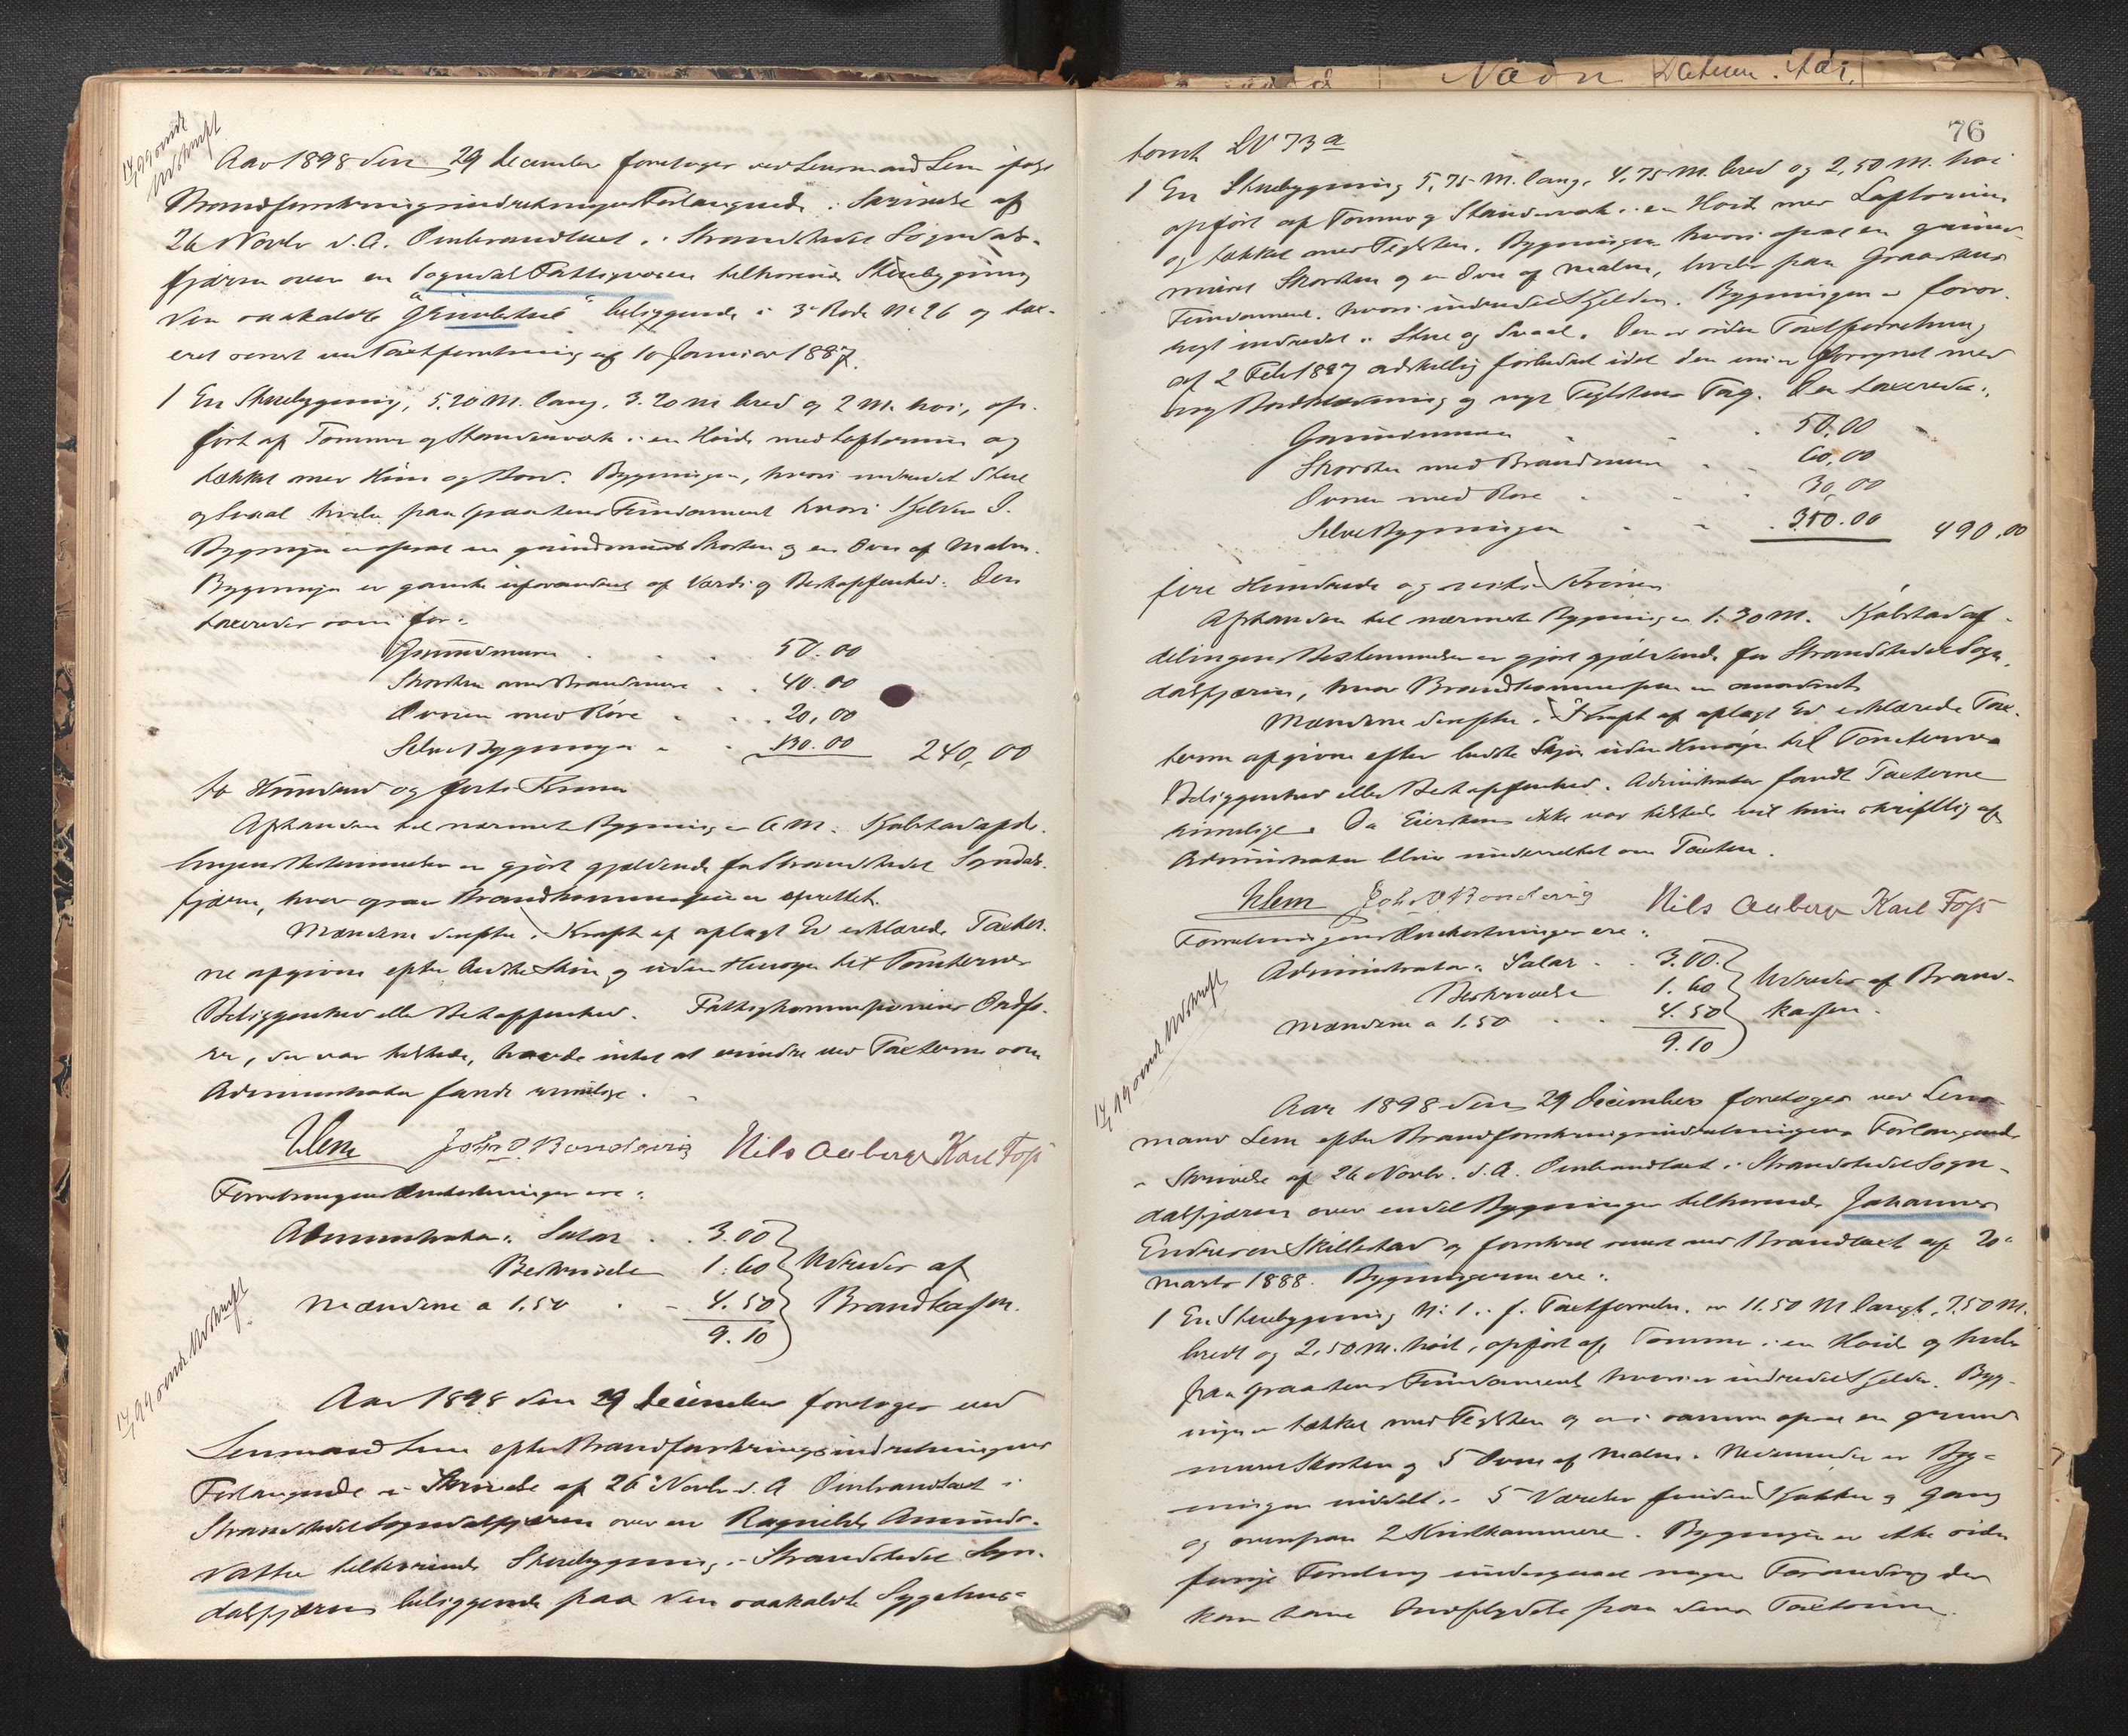 17/1 99 sendt
Udskrift
Aar 1898 den 29 december foretoges ved Lensmand Lem ifølge
Brandforsikringsindretningens Forlangende i Skrivelse af
26 Novbr d. A. Ombrandtaxt i Strandstedet Sogndals-
fjæren over en Sogndal Fattigvæsen tilhørende Stuebygning
den saakaldte "        " beliggende i 3 Rode No 26 og tax-
eret senest ved Taxtforretning af 10 Januar 1887.
1 En Stuebygning, 5.20 M. lang, 3.20 m bred og 2 M. høi, op-
ført af Tømmer og Standerværk i en Høide med Loftsrum og
tækket med Never og Bord. Bygningen, hvori indredet Stue
og Sval hviler paa Graastens Fundament hvori Kjelder. I
Bygningen er opsat en grundmuret Skorsten og en Ovn af Malm.
Bygningen er ganske uforandret af Værdi og Beskaffenhed. Den
taxeredes som før:
Grundmuren . . . 50.00
Skorsten med Brandmure . . 40.00
Ovnen med Røre . . . 20,00
Selve Bygningen . . 130.00 240,00
to Hundrede og førti Kroner
Afstanden til nærmeste Bygning er 6 M. Kjøbstadafde-
lingens Bestemmelser er gjort gjældende for Strandstedet Sogndals-
fjæren, hvor ogsaa Brandkommission er oprettet.
Mændene derefter i Kraft af aflagt Ed erklærede Taxter-
ne afgivne efter bedste Skjøn og uden Hensyn til Tomternes
Beliggenhed eller Beskaffenhed. Fattigkommissionens Ordfø-
rer, der var tilstede, havde intet at erindre ved Taxterne som
Administrator fandt rimelige.
Lem John O. Bondevig Nils Aaberge Karl Foss
Forretningens Omkostninger ere:
Administrator: Salær . . 3.00
Beskrivelse 1.60 Udredes af
Mændene a 1,50 . - 4.50 Brandkassen.
9.10
17/1 99 sendt Udskrift
Aar 1898 den 29 december foretoges ved
Lensmand Lem efter Brandforsikringsindretningens
Forlangende i Skrivelse af 26 Novbr d. A Ombrandtaxt i
Strandstedet Sogndalsfjæren over en Ragnilde Amunds-
datter tilhørende Stuebygning i Strandstedet Sogn-
dalsfjæren beliggende paa den saakaldte Sygehus-
76
tomt LV 73 a
1 En Stuebygning 5,75 M. lang, 4,75 M. bred og 2,50 M. høi
opført af Tømmer og Standerværk i en Høide med Loftsrum
og tækket med Teglsten. Bygningen hvori opsat en grund-
muret Skorsten og en Ovn af malm, hviler paa Graastens
Fundament, hvori indredet Kjelder. Bygningen er forøv-
rigt indredet i Stue og Sval. Den er siden Taxtforretning
af 2 Feb 1887 adskillig forbedret idet den nu er forsynet med
ny Bordklædning og nyt Teglstens Tag. Den taxeredes:
Grundmuren . . . 50.00
Skorsten med Brandmure . . 60,00
Ovnen med Røre . . . 30,00
Selve Bygningen . . 350.00 490.00
fire Hundrede og nitti Kroner
Afstanden til nærmeste Bygning er 1.30 M. Kjøbstadaf-
delingens Bestemmelser er gjort gjældende for Strandstedet Sogn-
dalsfjæren, hvor Brandkommission er anordnet
Mændene derefter i Kraft af aflagt Ed erklærede Tax-
terne afgivne efter bedste Skjøn uden Hensyn til Tomternes
Beliggenhed eller Beskaffenhed. Administrator fandt Taxterne
rimelige. Da Eiersken ikke var tilstede vil hun skriftlig af
Administrator blive underrettet om Taxten.
Lem John O Bondevig Nils Aaberge Karl Foss
Forretningens Omkostninger ere:
Administrator: Salær . . 3.00
Beskrivelse 1.60 Udredes af Brand-
Mændene a 1.50 . . 4.50 kassen.
9.10
17/1 99 sendt Udskrift
Aar 1898 den 29 december foretoges ved Lens-
mand Lem efter Brandforsikringsindretningens Forlangende
i Skrivelse af 26 Novbr. d. A. Ombrandtaxt i Strandstedet Sogn-
dalsfjæren over endel Bygninger tilhørende Johannes
Endresen Skillestad og forsikret senest ved Brandtaxt af 20
marts 1888. Bygningerne ere:
1 En Stuebygning No 1 i f. Taxtforretn. er 11.50 M langt, 7.50 M.
bredt og 2,50 M. høit, opført af Tømmer i en Høide og hviler
paa Graastens Fundament hvori er indredet Kjelder. Byg-
ningen tækket med Teglsten og er i samme opsat en grund
muret Skorsten og 5 Ovne af malm. Nedenunder er Byg-
ningen inddelt i 5 Værelser foruden Kjøkken og Gang
og ovenpaa 2 Kvistkammere. Bygningen er ikke siden
forrige Forretning undergaaet nogen Forandring der
kan have Indflydelse paa dens Taxtsum.